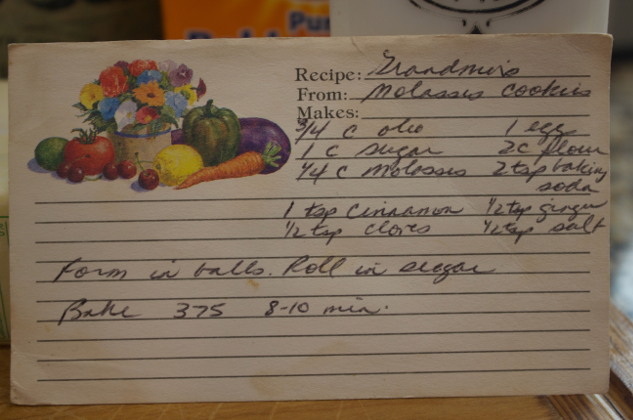 Pur
Recipe: Grandma's
From: Molasses Cookies
Makes:
3/4 c oleo 1 egg
1 c sugar 2 c flour
1/4 c molasses 2 tsp baking
soda
1 tsp cinnamon 1/2 tsp ginger
1/2 tsp cloves 1/2 tsp salt
Form in balls. Roll in sugar
Bake 375 8-10 min.